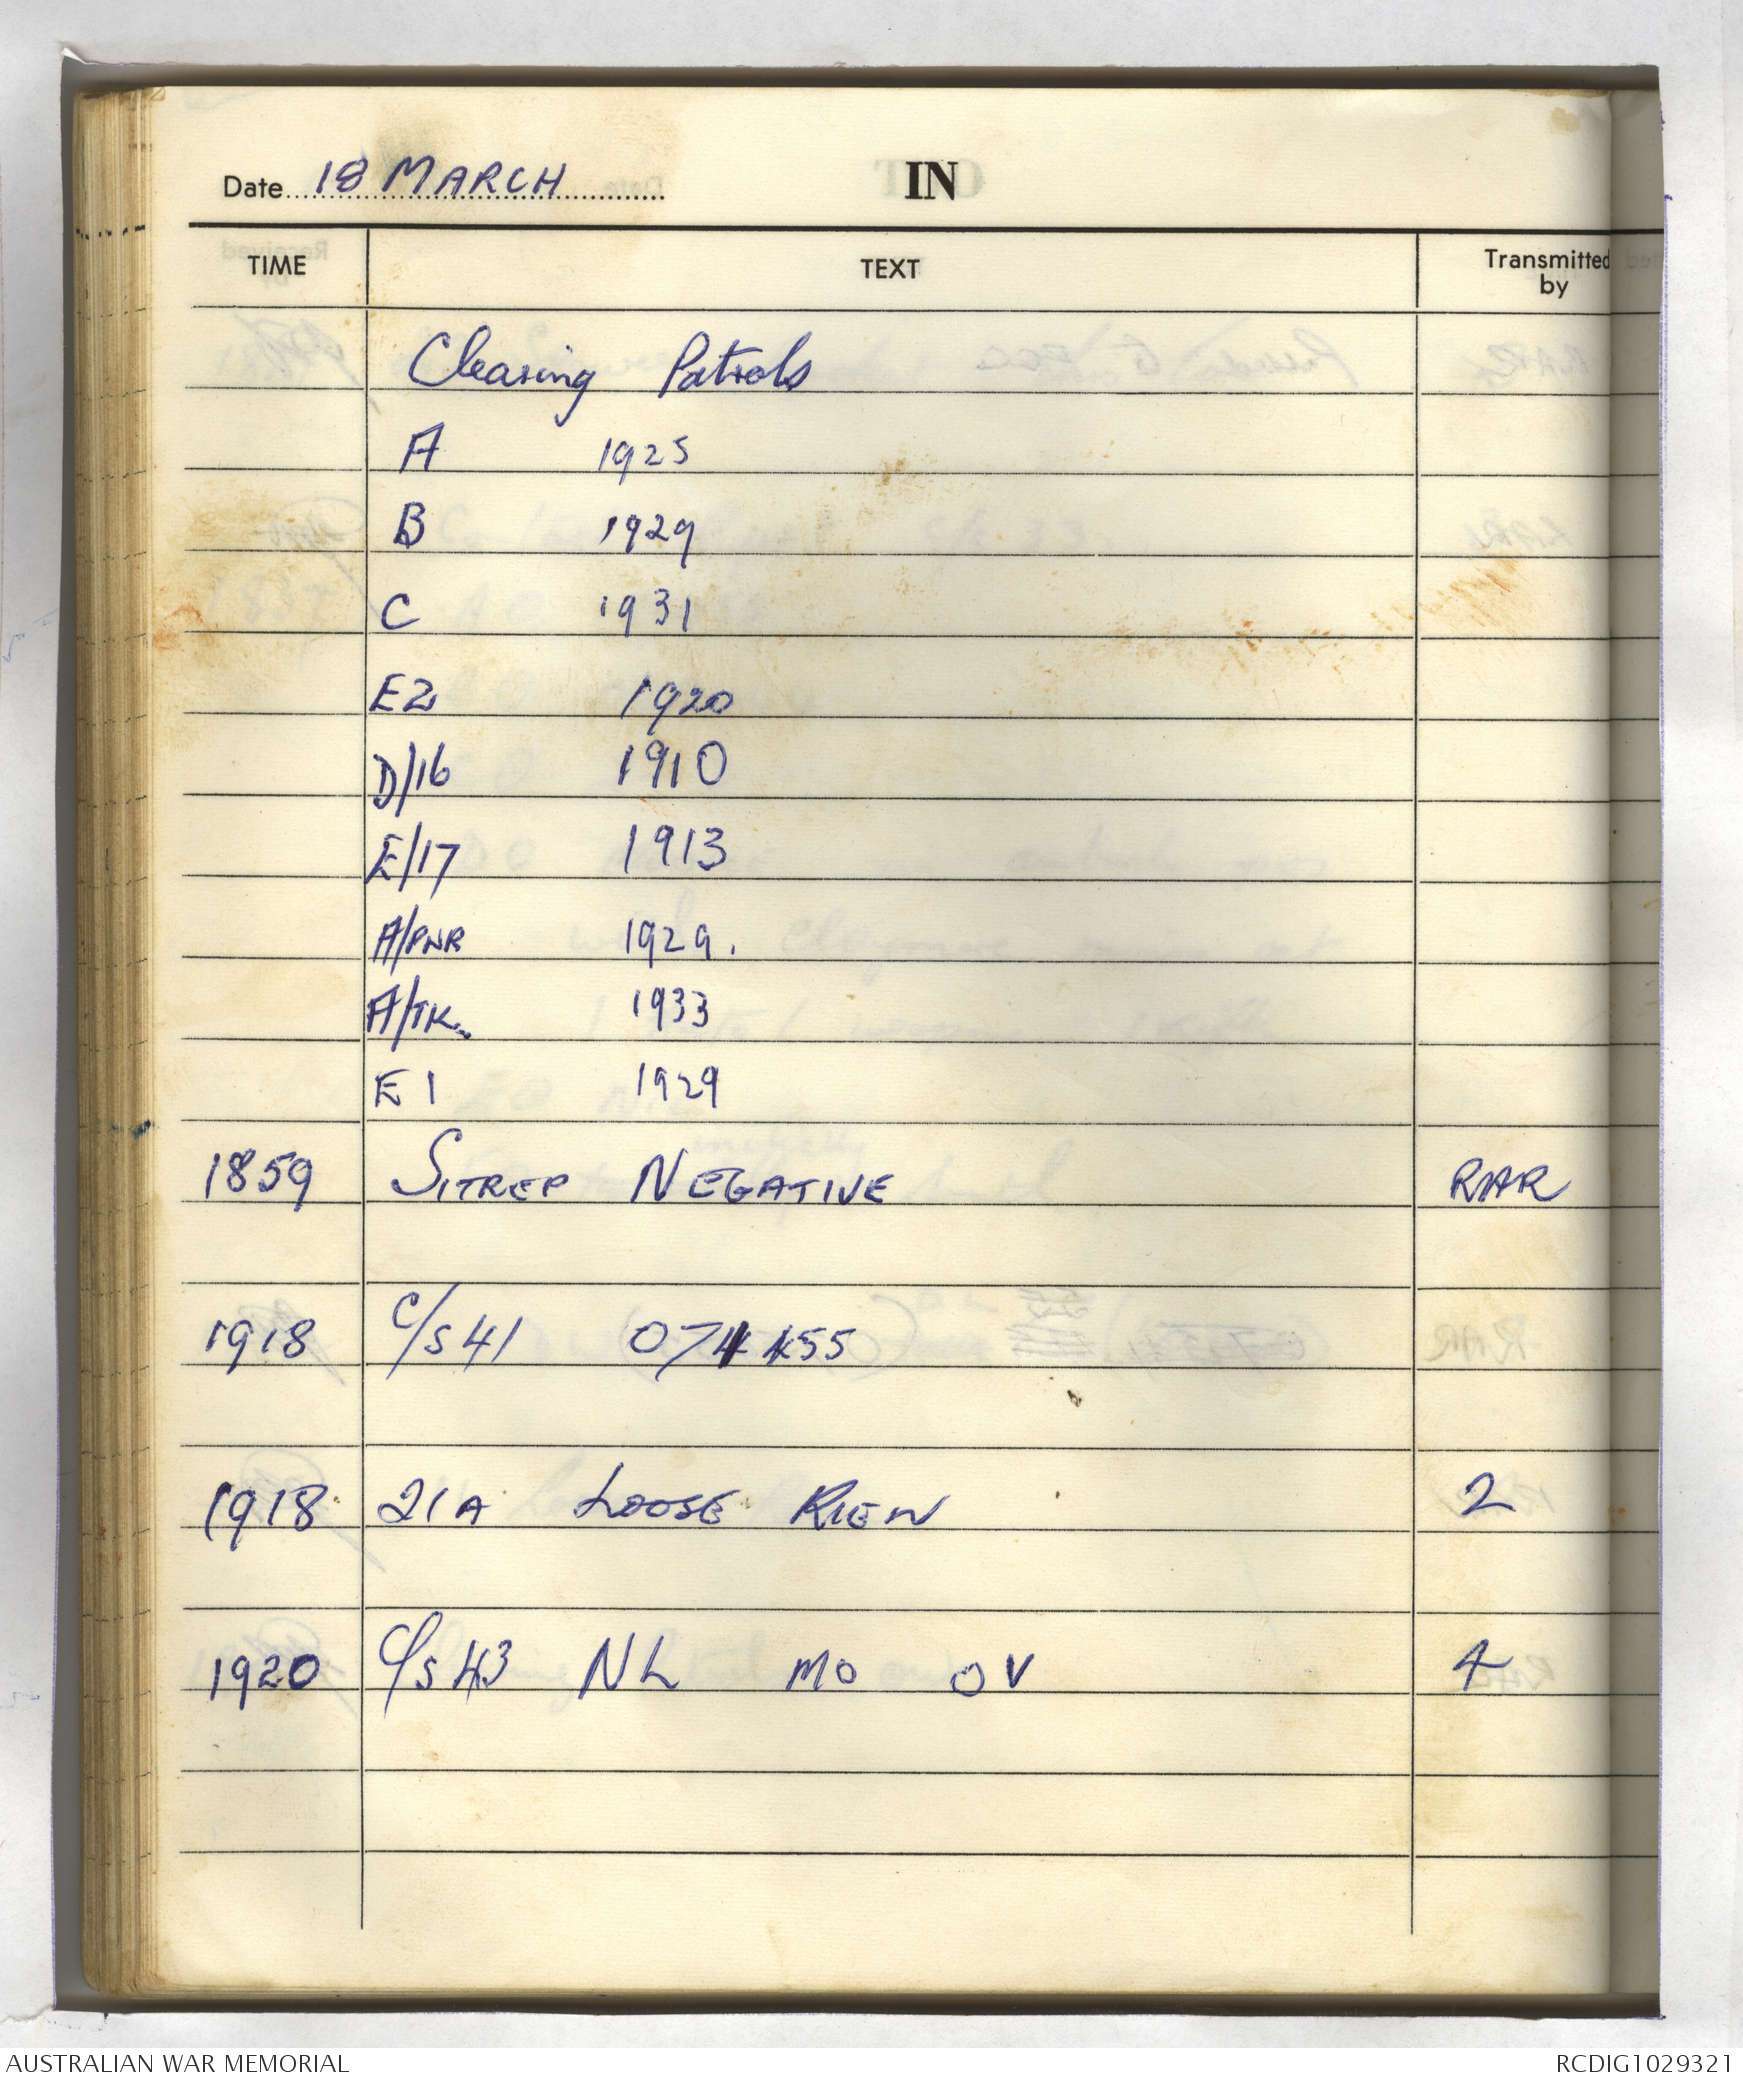 Date 18 MARCH IN
TIME TEXT Transmitted by
Clearing Patrols
A 1925
B 1929
C 1931
E2 1920
D/16 1910
E/17 1913
A/PNR 1929.
A/TK. 1933
E1 1929
1859 SITREP NEGATIVE RAR
1918 C/S 41 074 455
1918 21A LOOSE REW 2
1920 C/S 43 NL MO OV 4
AUSTRALIAN WAR MEMORIAL RCDIG1029321